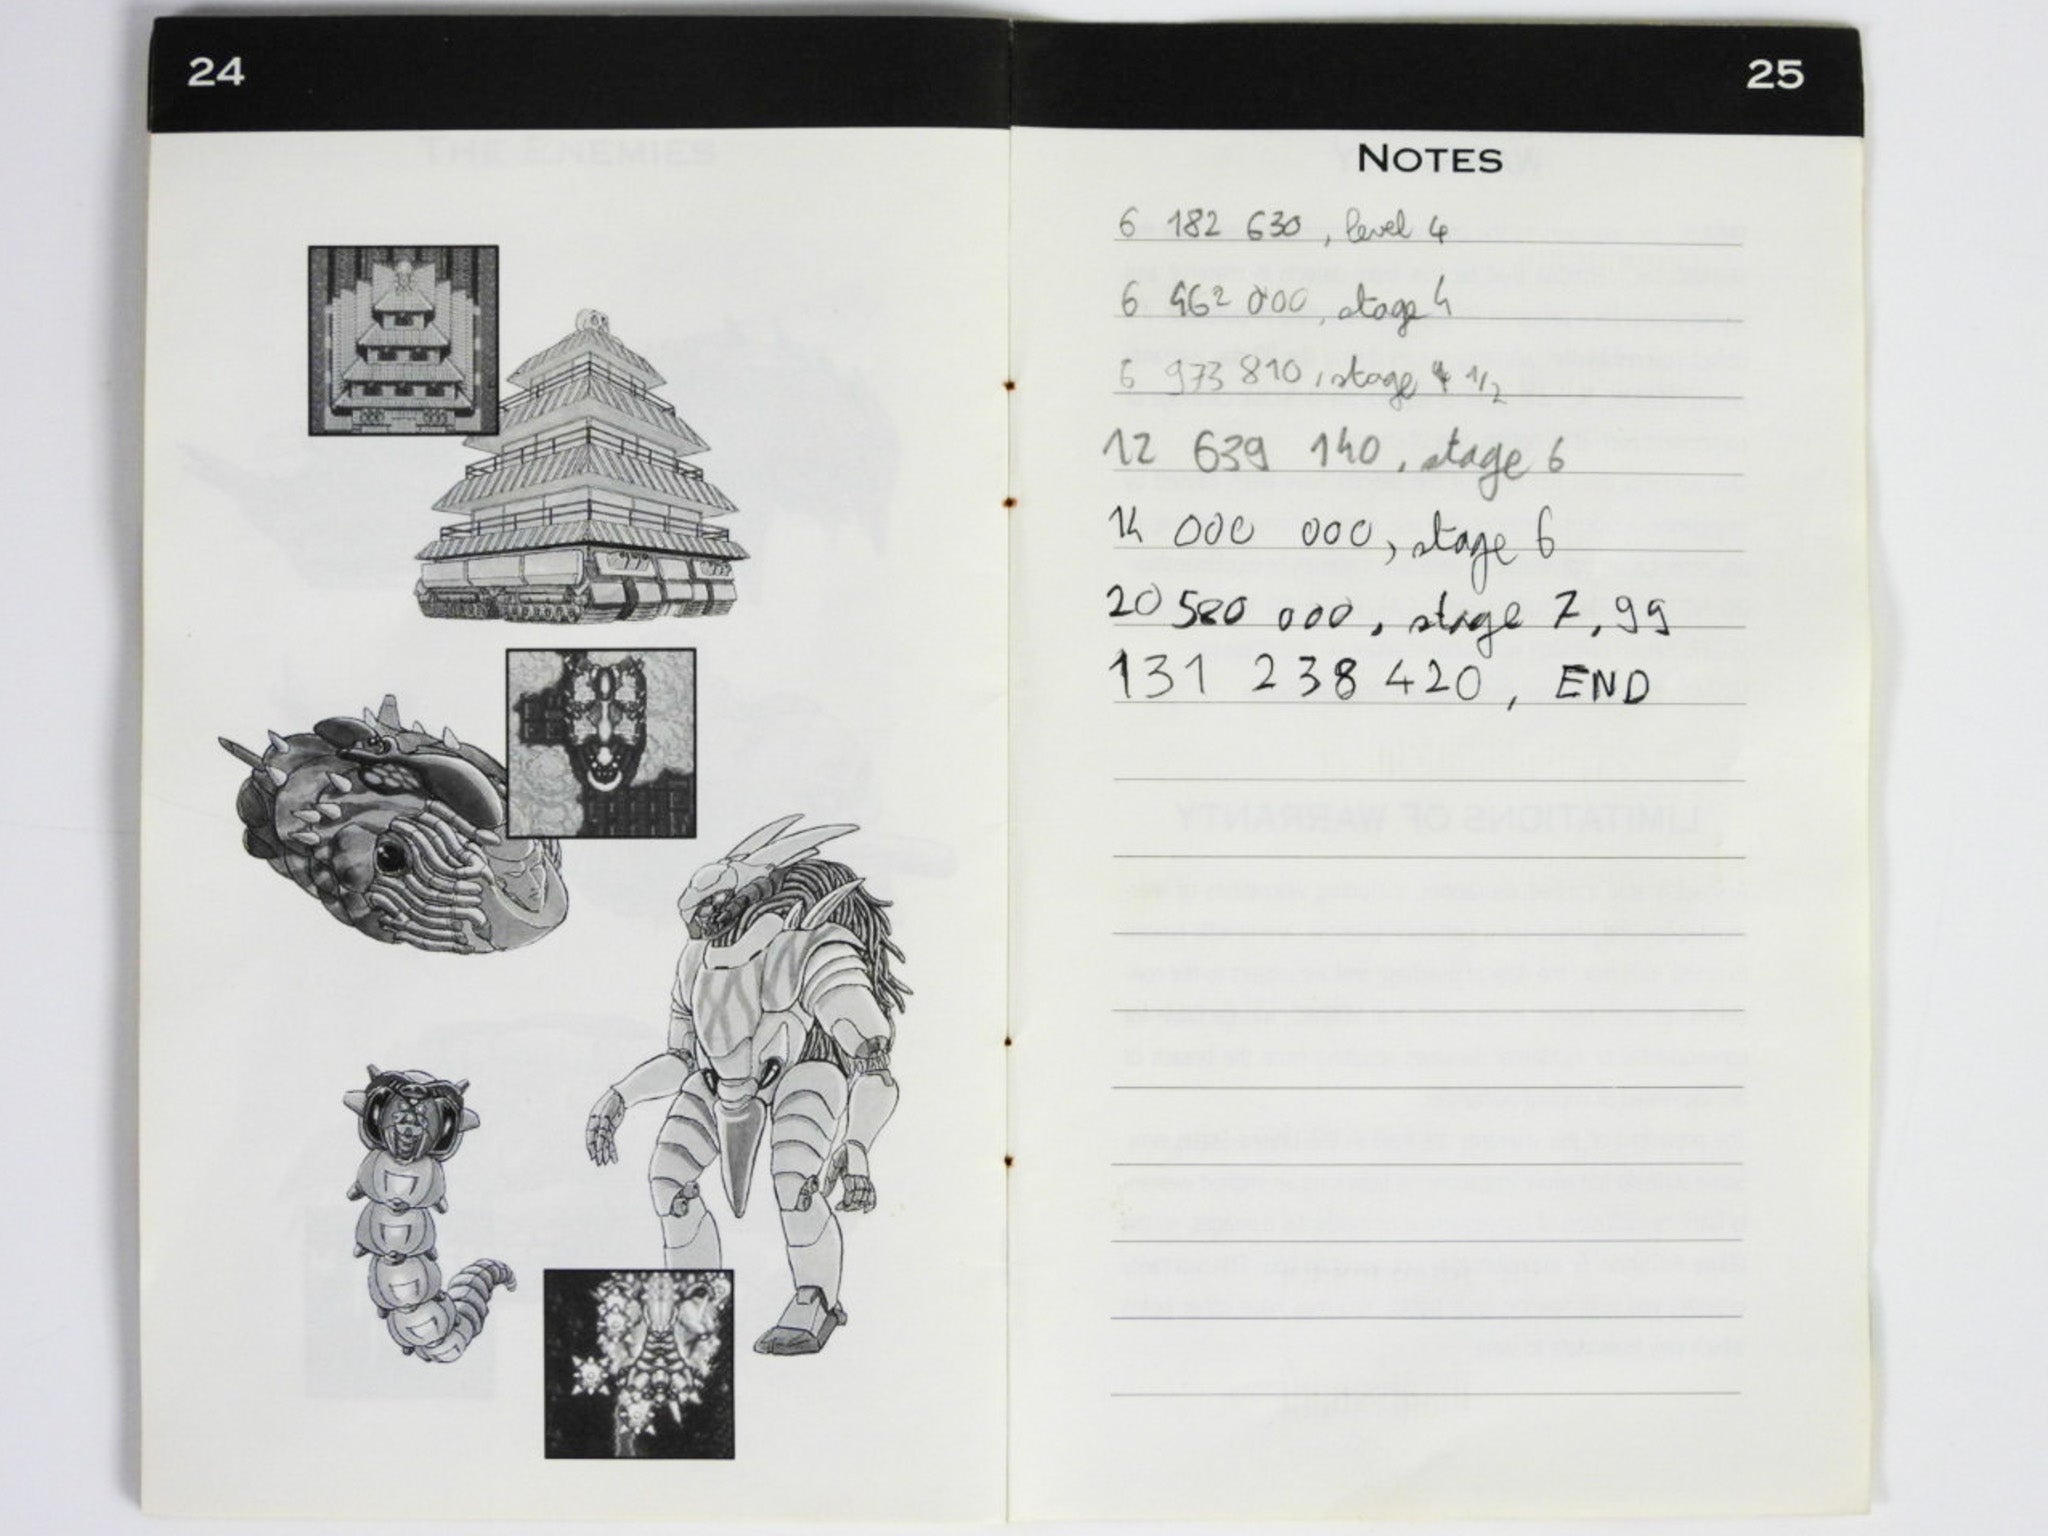 24
25
NOTES
6 182 630, level 4
6 462 000, stage 4
6 973 810, stage 4 1/2
12 639 140, stage 6
14 000 000, stage 6
20 580 000, stage 7,99
131 238 420, END
THE ENEMIES
LIMITATIONS OF WARRANTY